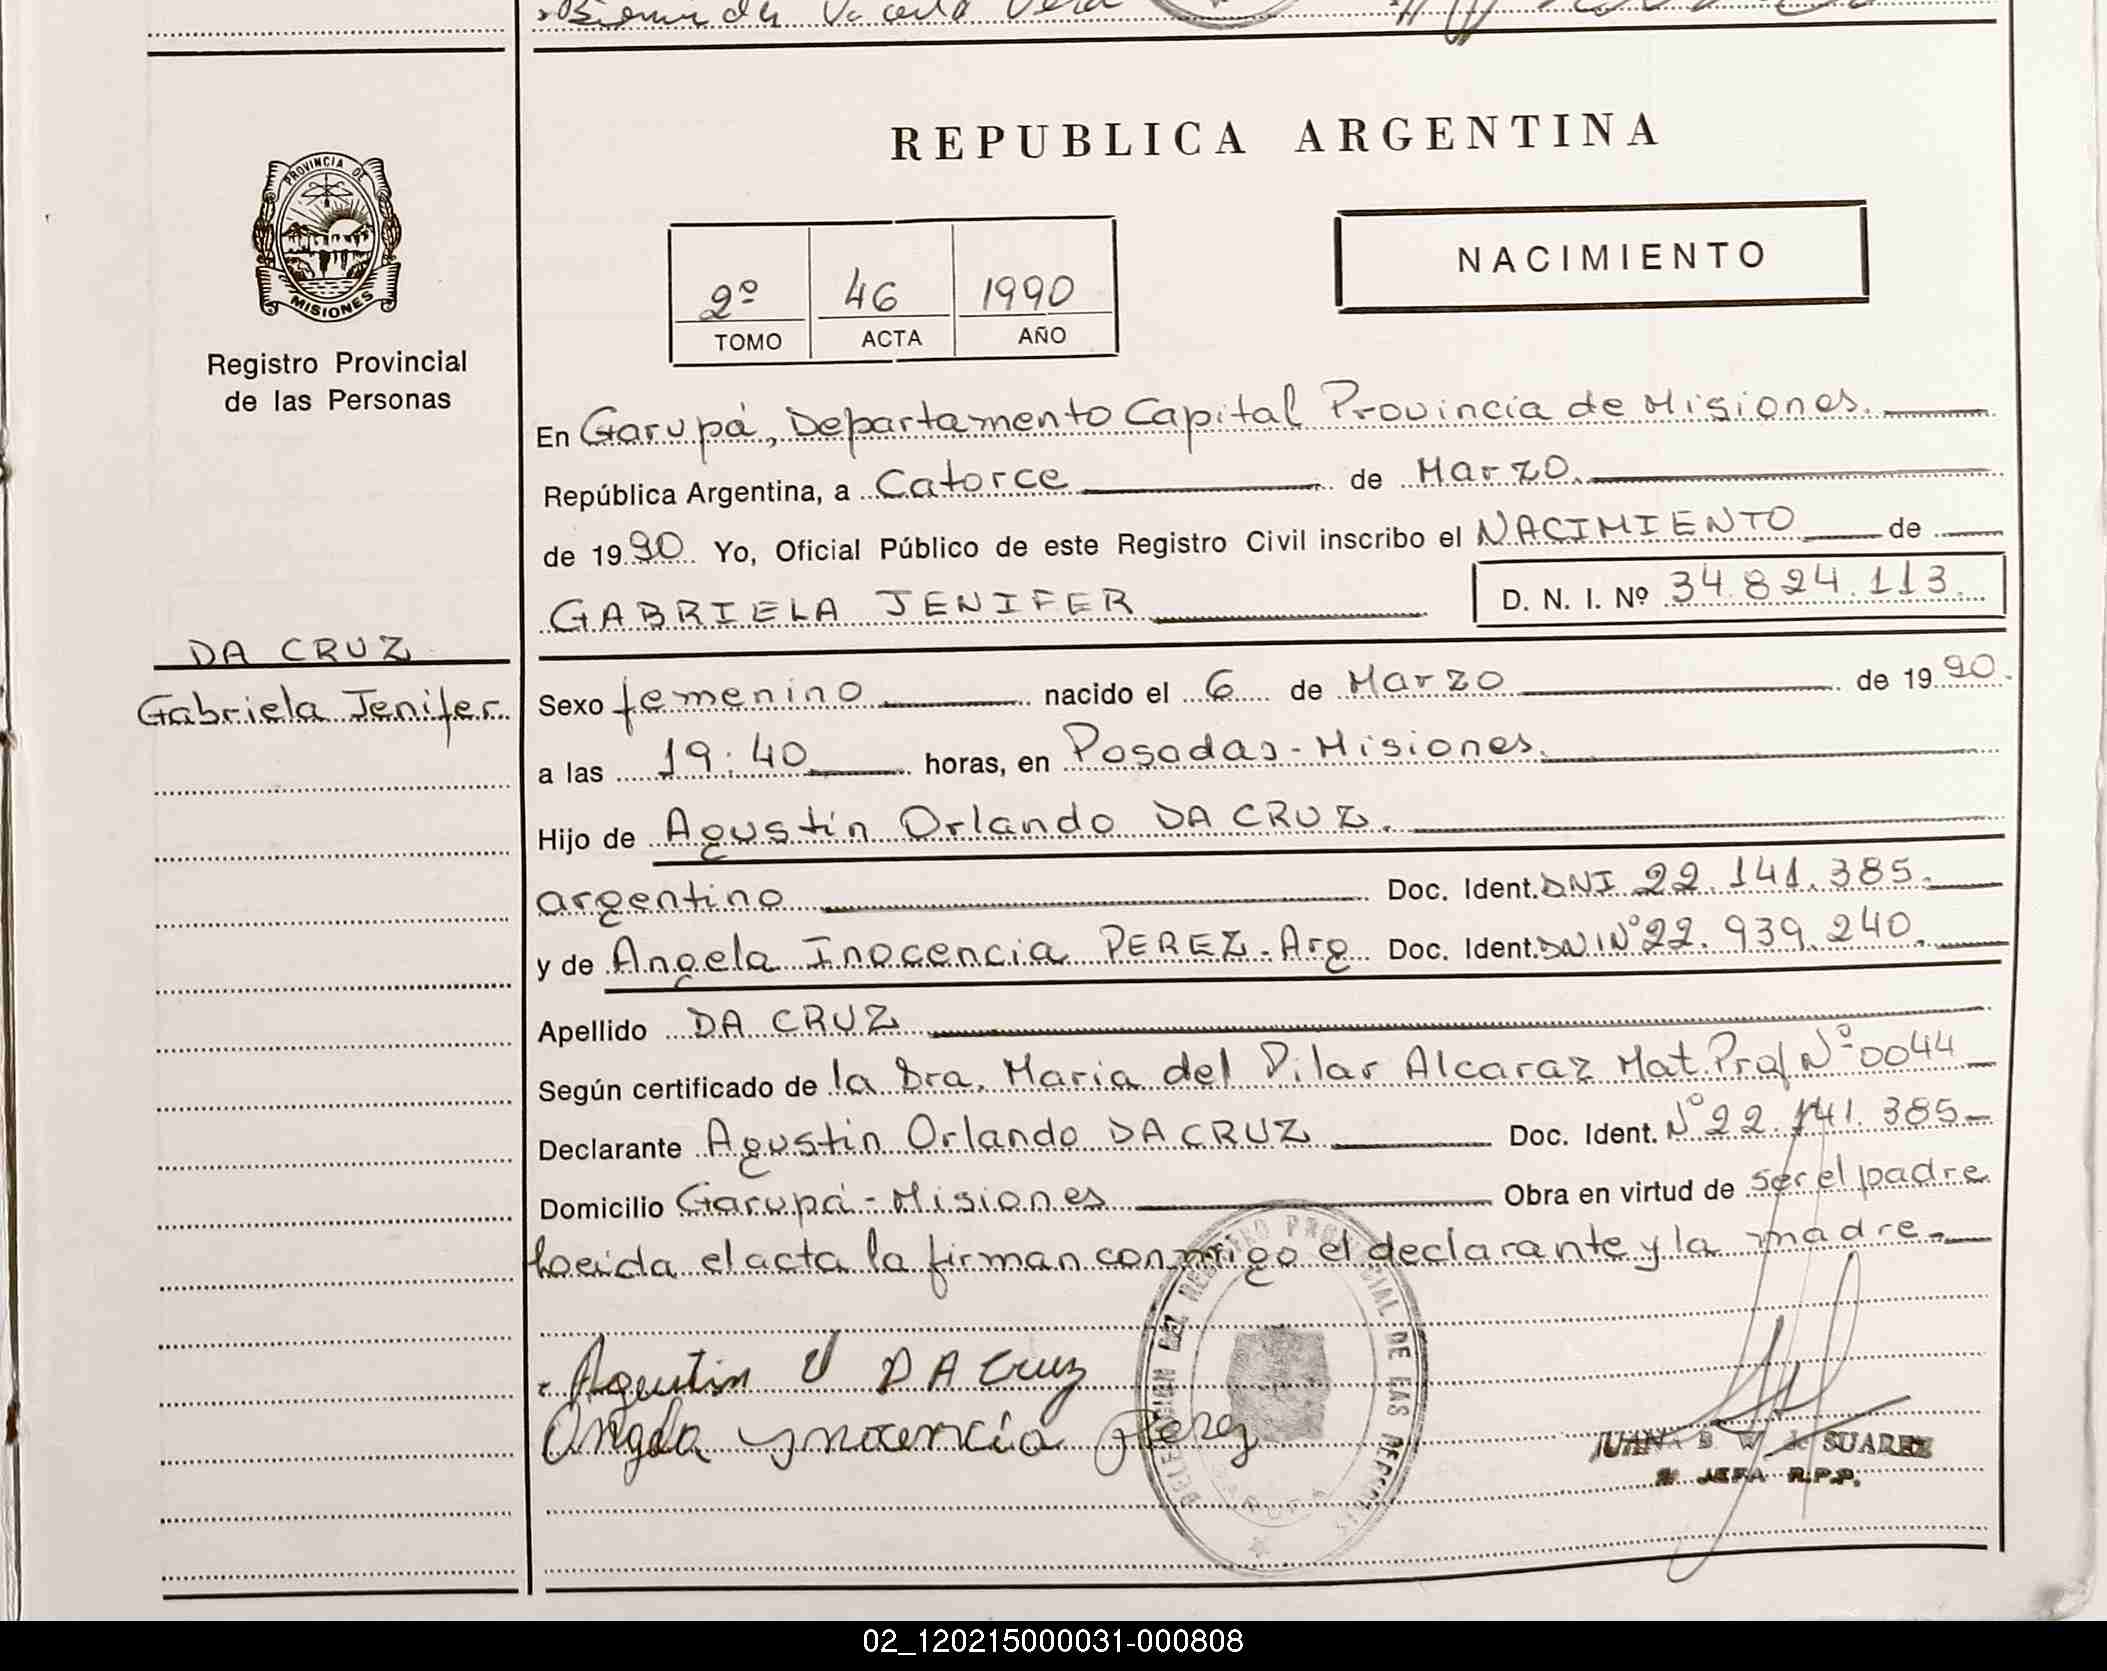 PROVINCIA DE
MISIONES
Registro Provincial
de las Personas
DA CRUZ
Gabriela Jenifer
REPUBLICA ARGENTINA
NACIMIENTO
2º 46 1990
TOMO ACTA AÑO
En Garupá, Departamento Capital Provincia de Misiones.
República Argentina, a Catorce de Marzo.
de 1990 Yo, Oficial Público de este Registro Civil inscribo el NACIMIENTO de
GABRIELA JENIFER D. N. I. Nº 34.824.113.
Sexo femenino nacido el 6 de Marzo de 1990.
a las 19:40 horas, en Posadas-Misiones.
Hijo de Agustín Orlando DA CRUZ.
argentino Doc. Ident. DNI 22.141.385.
y de Angela Inocencia PEREZ-Arg Doc. Ident. DNI Nº 22.939.240.
Apellido DA CRUZ
Según certificado de la Dra. Maria del Pilar Alcaraz Mat. Prof Nº 0044
Declarante Agustin Orlando DA CRUZ Doc. Ident. Nº 22.141.385-
Domicilio Garupá-Misiones Obra en virtud de ser el padre
Leida el acta la firman conmigo el declarante y la madre.-
DELEGACION DEL REGISTRO PROVINCIAL DE LAS PERSONAS
GARUPA
Agustin O DA Cruz
Angela ynocencia Perez
JUANA B. W. de SUAREZ
JEFA R.P.P.
02_120215000031-000808